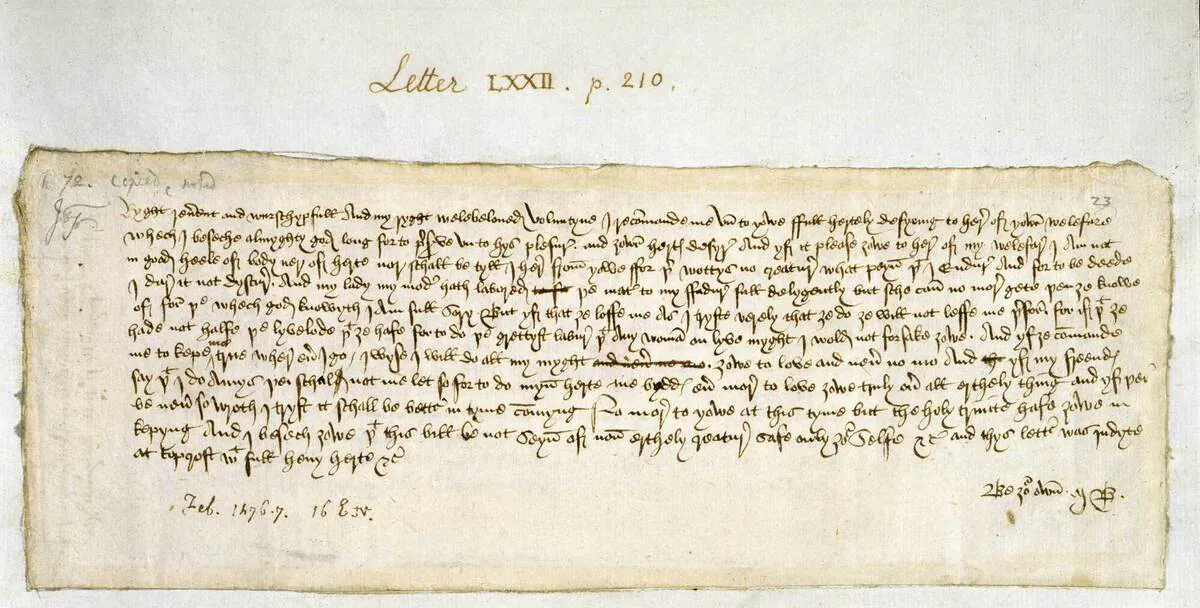 Letter LXXII. p. 210.
72. copied noted
23
Ryght reuerent and wurschypfull and my ryght welebeloued Voluntyne I recomande me vn to yowe ffull hertely desyring to here of yowr welefare
whech I beseche almyghty god long for to preserve vn to hys plesur and yowr herts desyre And yf it please yowe to here of my welefar I am not
in good heele of body ner of herte nor schall be tyll I her from yowe ffor þer wottys no creatur what peyn þt I endur And for to be deede
I dar it not dyscur And my lady my moder hath labored þe mater to my ffadur full delygently but sche can no mor gete þen ze knowe
of for þe whech god knowyth I am full sory But yf that ze loffe me as I tryste verely that ze do ze will not leffe me þerfor for if þt ze
hade not halfe þe lyvelode þt ze hafe for to do þe grettyst labur þt any woman on lyve myght I wold not forsake zowe And yf ze commande
me to kepe me trwe wher euer I go I wyse I will do all my myght zowe to love and neuer no mo And yf my freendes
say þt I do amys þei schal not me let so for to do myn herte me bydds euer mor to love zowe truly ouer all erthely thing and yf þei
be neuer so wroth I tryst it schall be better in tyme commyng No mor to yowe at this tyme but the holy trinite hafe zowe in
kepyng And I besech zowe þt this bill be not seyn of non erthely creatur safe only zour selfe &c and thys letter was indyte
at Topcroft wt full heuy herte &c
Be zour own M B.
Feb. 1476-7. 16 E.IV.